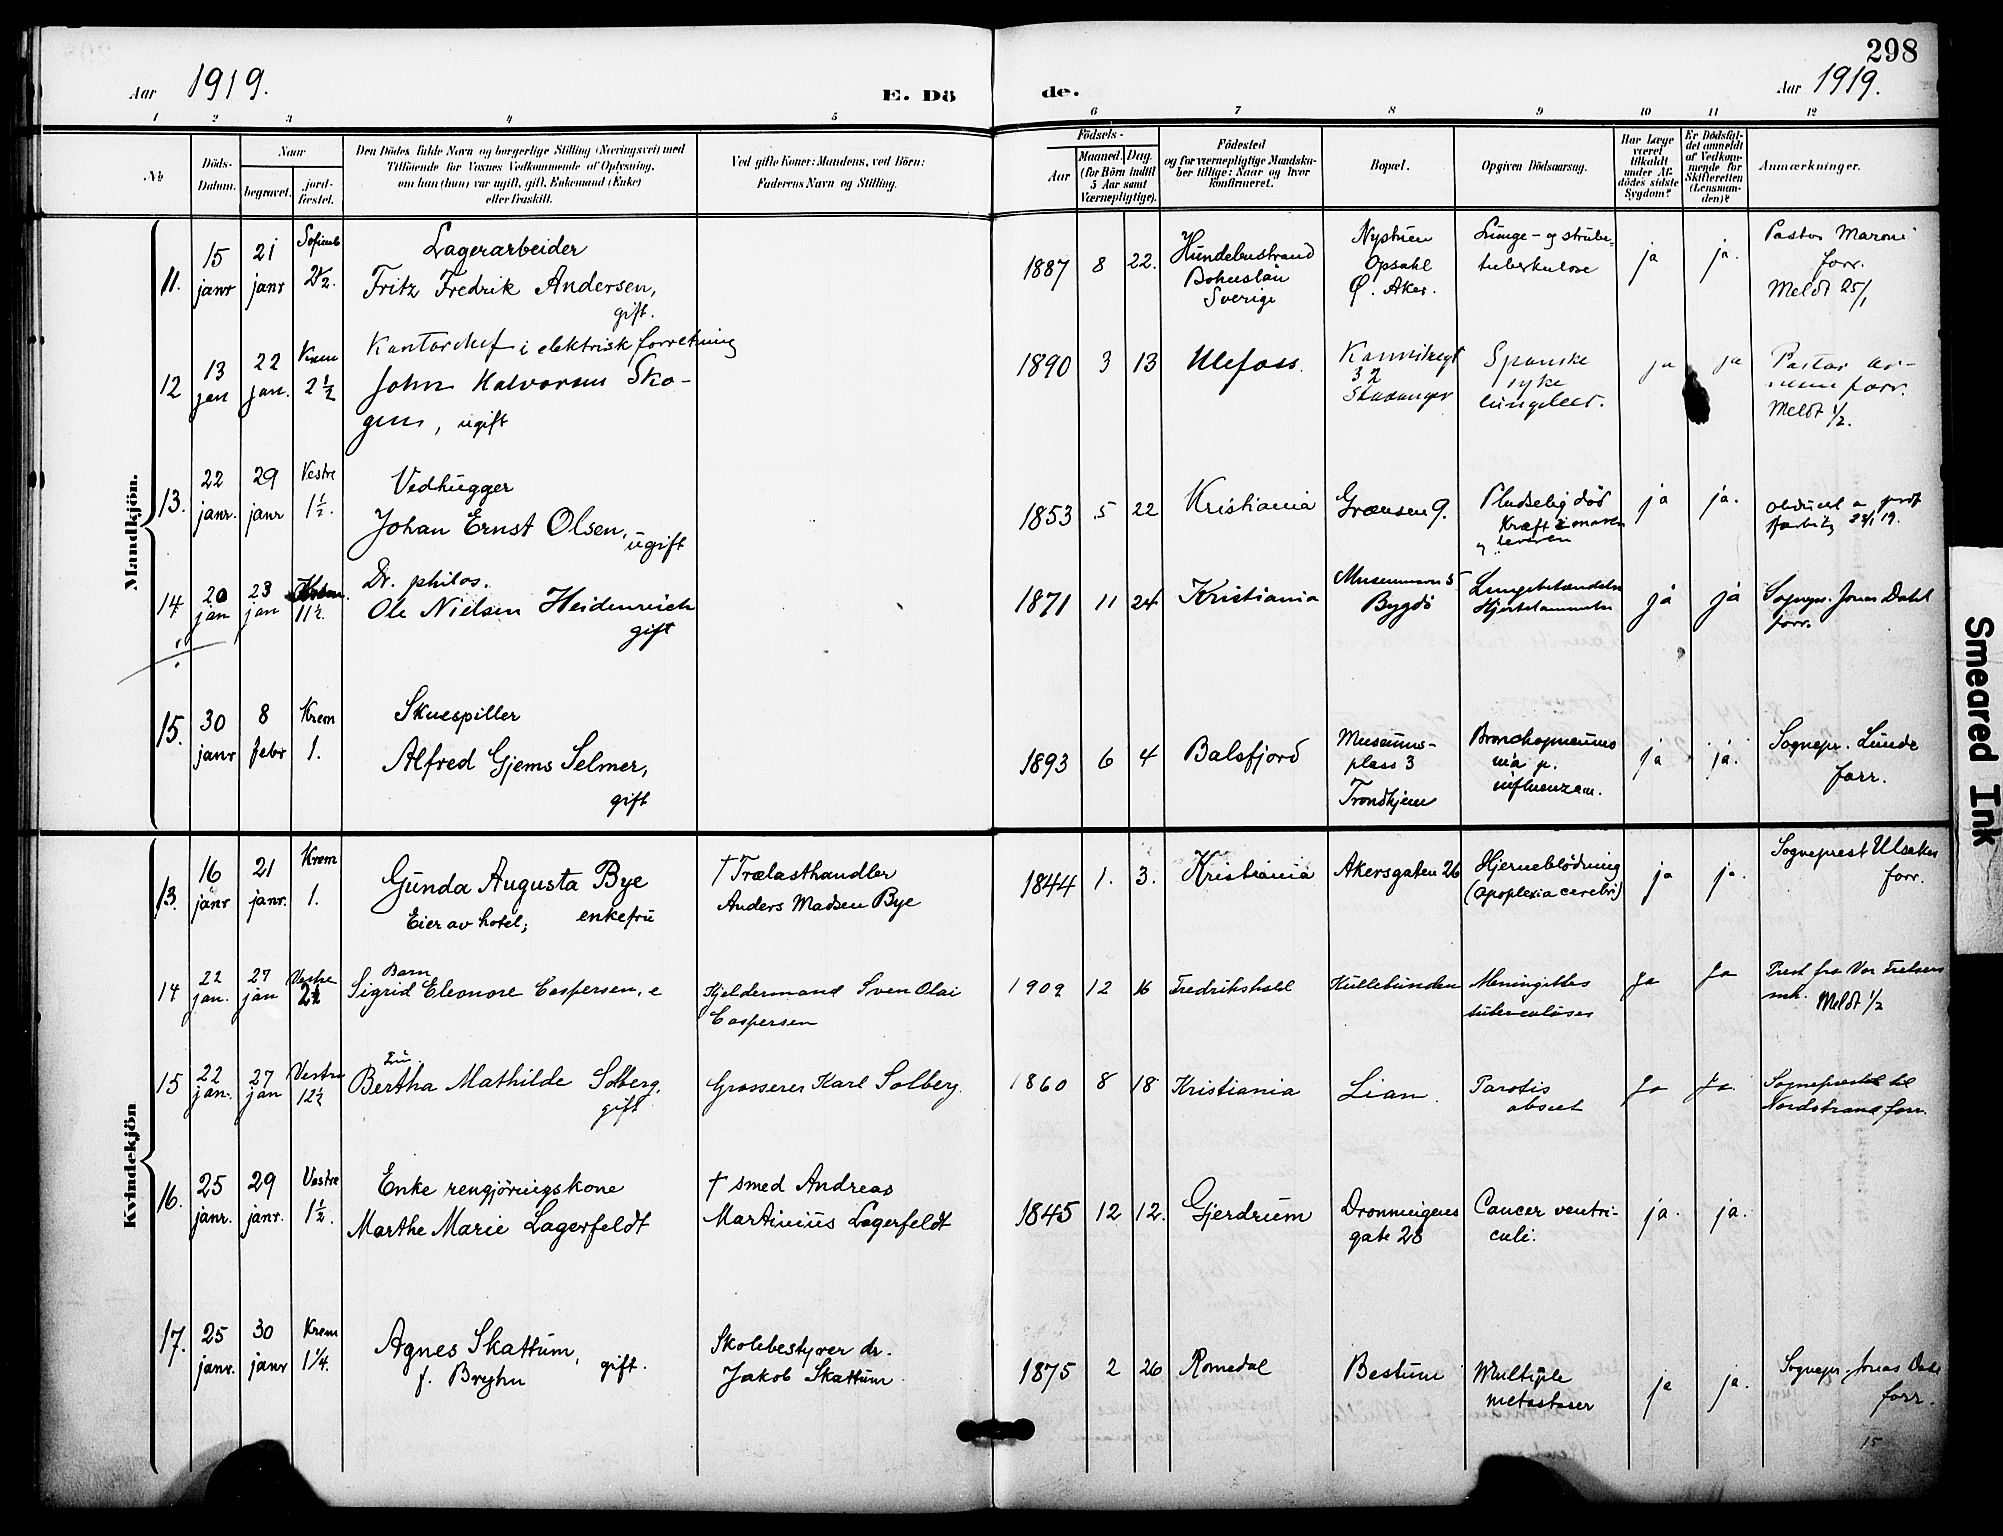 298
Aar 1919.
E. Døde.
Aar 1919.
1 2 3 4 5 6 7 8 9 10 11 12
No
Döds-Datum.
Naar
begravet.
jord-fæstet.
Den Dödes fulde Navn og borgerlige Stilling (Næringsvei) med
Tilföiende for Voxnes Vedkommende af Oplysning,
om han (hun) var ugift, gift, Enkemand (Enke)
eller fraskilt.
Ved gifte Koner: Mandens, ved Börn:
Faderens Navn og Stilling.
Födsels-
Aar
Maaned. Dag.
(for Börn indtil
5 Aar samt
Værnepligtige).
Födested
og for værnepligtige Mandska-
ber tillige: Naar og hvor
konfirmeret.
Bopæl.
Opgiven Dödsaarsag.
Har Læge
været
tilkaldt
under Af-
dödes sidste
Sygdom?
Er Dödsfal-
det anmeldt
af Vedkom-
mende for
Skifteretten
(Lensman-
den)?
Anmærkninger.
Mandkjön.
11. 15 janr 21 janr 2½.
Lagerarbeider
Fritz Fredrik Andersen,
gift.
1887 8 22.
Hundebustrand
Bohuslän
Sverige
Nystuen
Opsahl
Ø. Aker.
Lunge- og strube-
tuberkulose
ja ja.
Pastor Maroni
forr.
Meldt 25/1
12 13 jan 22 jan. Krem 2½
Kontorchef i elektrisk forretning
John Halvorsen Sko-
gen, ugift
1890 3 13
Ulefoss.
32
Stavanger
Spanske
syke
ja ja
Pastor
forr.
Meldt ½.
13. 22 janr. 29 janr Vestre 1½.
Vedhugger
Johan Ernst Olsen,
ugift
1853 5 22
Kristiania
Grænsen 9.
Pludselig død
Kræft i maven
leveren
ja ja.
14 20 jan 23 jan 11½.
Dr. philos.
Ole Nielsen Heidenreich
gift
1871 11 24
Kristiania
Bygdö
Lungebetændelse
Hjertelammelse
ja ja
Sognepr. Jonas Dahl
forr.
15. 30 janr 8 febr Krem 1.
Skuespiller
Alfred Gjems Selmer,
gift
1893 6 4
Balsfjord
Museums-
plass 3
Trondhjem
Bronchopneumo
nia p.
influenzam.
ja ja.
Sognepr. Lunde
forr.
Kvindekjön
13. 16 janr 21 janr. Krem 1.
Gunda Augusta Bye
Eier av hotel, enkefru
† Trælasthandler
Anders Madsen Bye
1844 1. 3.
Kristiania
Akersgaten 26
Hjerneblödning
(apoplexia cerebri)
ja ja.
Sogneprest Ulsaker
forr.
14 22 jan. 27 jan Vestre 2½
Barn
Sigrid Eleonore Caspersen, e
Kjeldermand Sven Olai
Caspersen
1909 12 16
Fredrikshald
Hullebunden
Meningittes
tuberculoses
Ja Ja
Prest fra Vor Frelsers
mh. Meldt ½
15 22 jan. 27 jan Vestre 12½
Fru
Bertha Mathilde Solberg,
gift
Grosserer Karl Solberg.
1860 8 18
Kristiania
Lian.
Parotis
abscet
Ja Ja
Nordstrand forr.
16. 25 janr. 29 janr. Vestre 1½.
Enke rengjøringskone
Marthe Marie Lagerfeldt
† smed Andreas
Martinius Lagerfeldt
1845 12 12.
Gjerdrum
Dronningens
gate 28
Cancer ventri-
culi.
ja. ja.
17. 25 janr. 30 janr Krem 1¼.
Agnes Skattum,
f. Bryhn gift.
Skolebestyrer dr.
Jakob Skattum
1875 2 26
Romedal
Bestum
Multiple
metastaser
ja ja.
Sognepr. Jonas Dahl
forr.
15
Smeared Ink